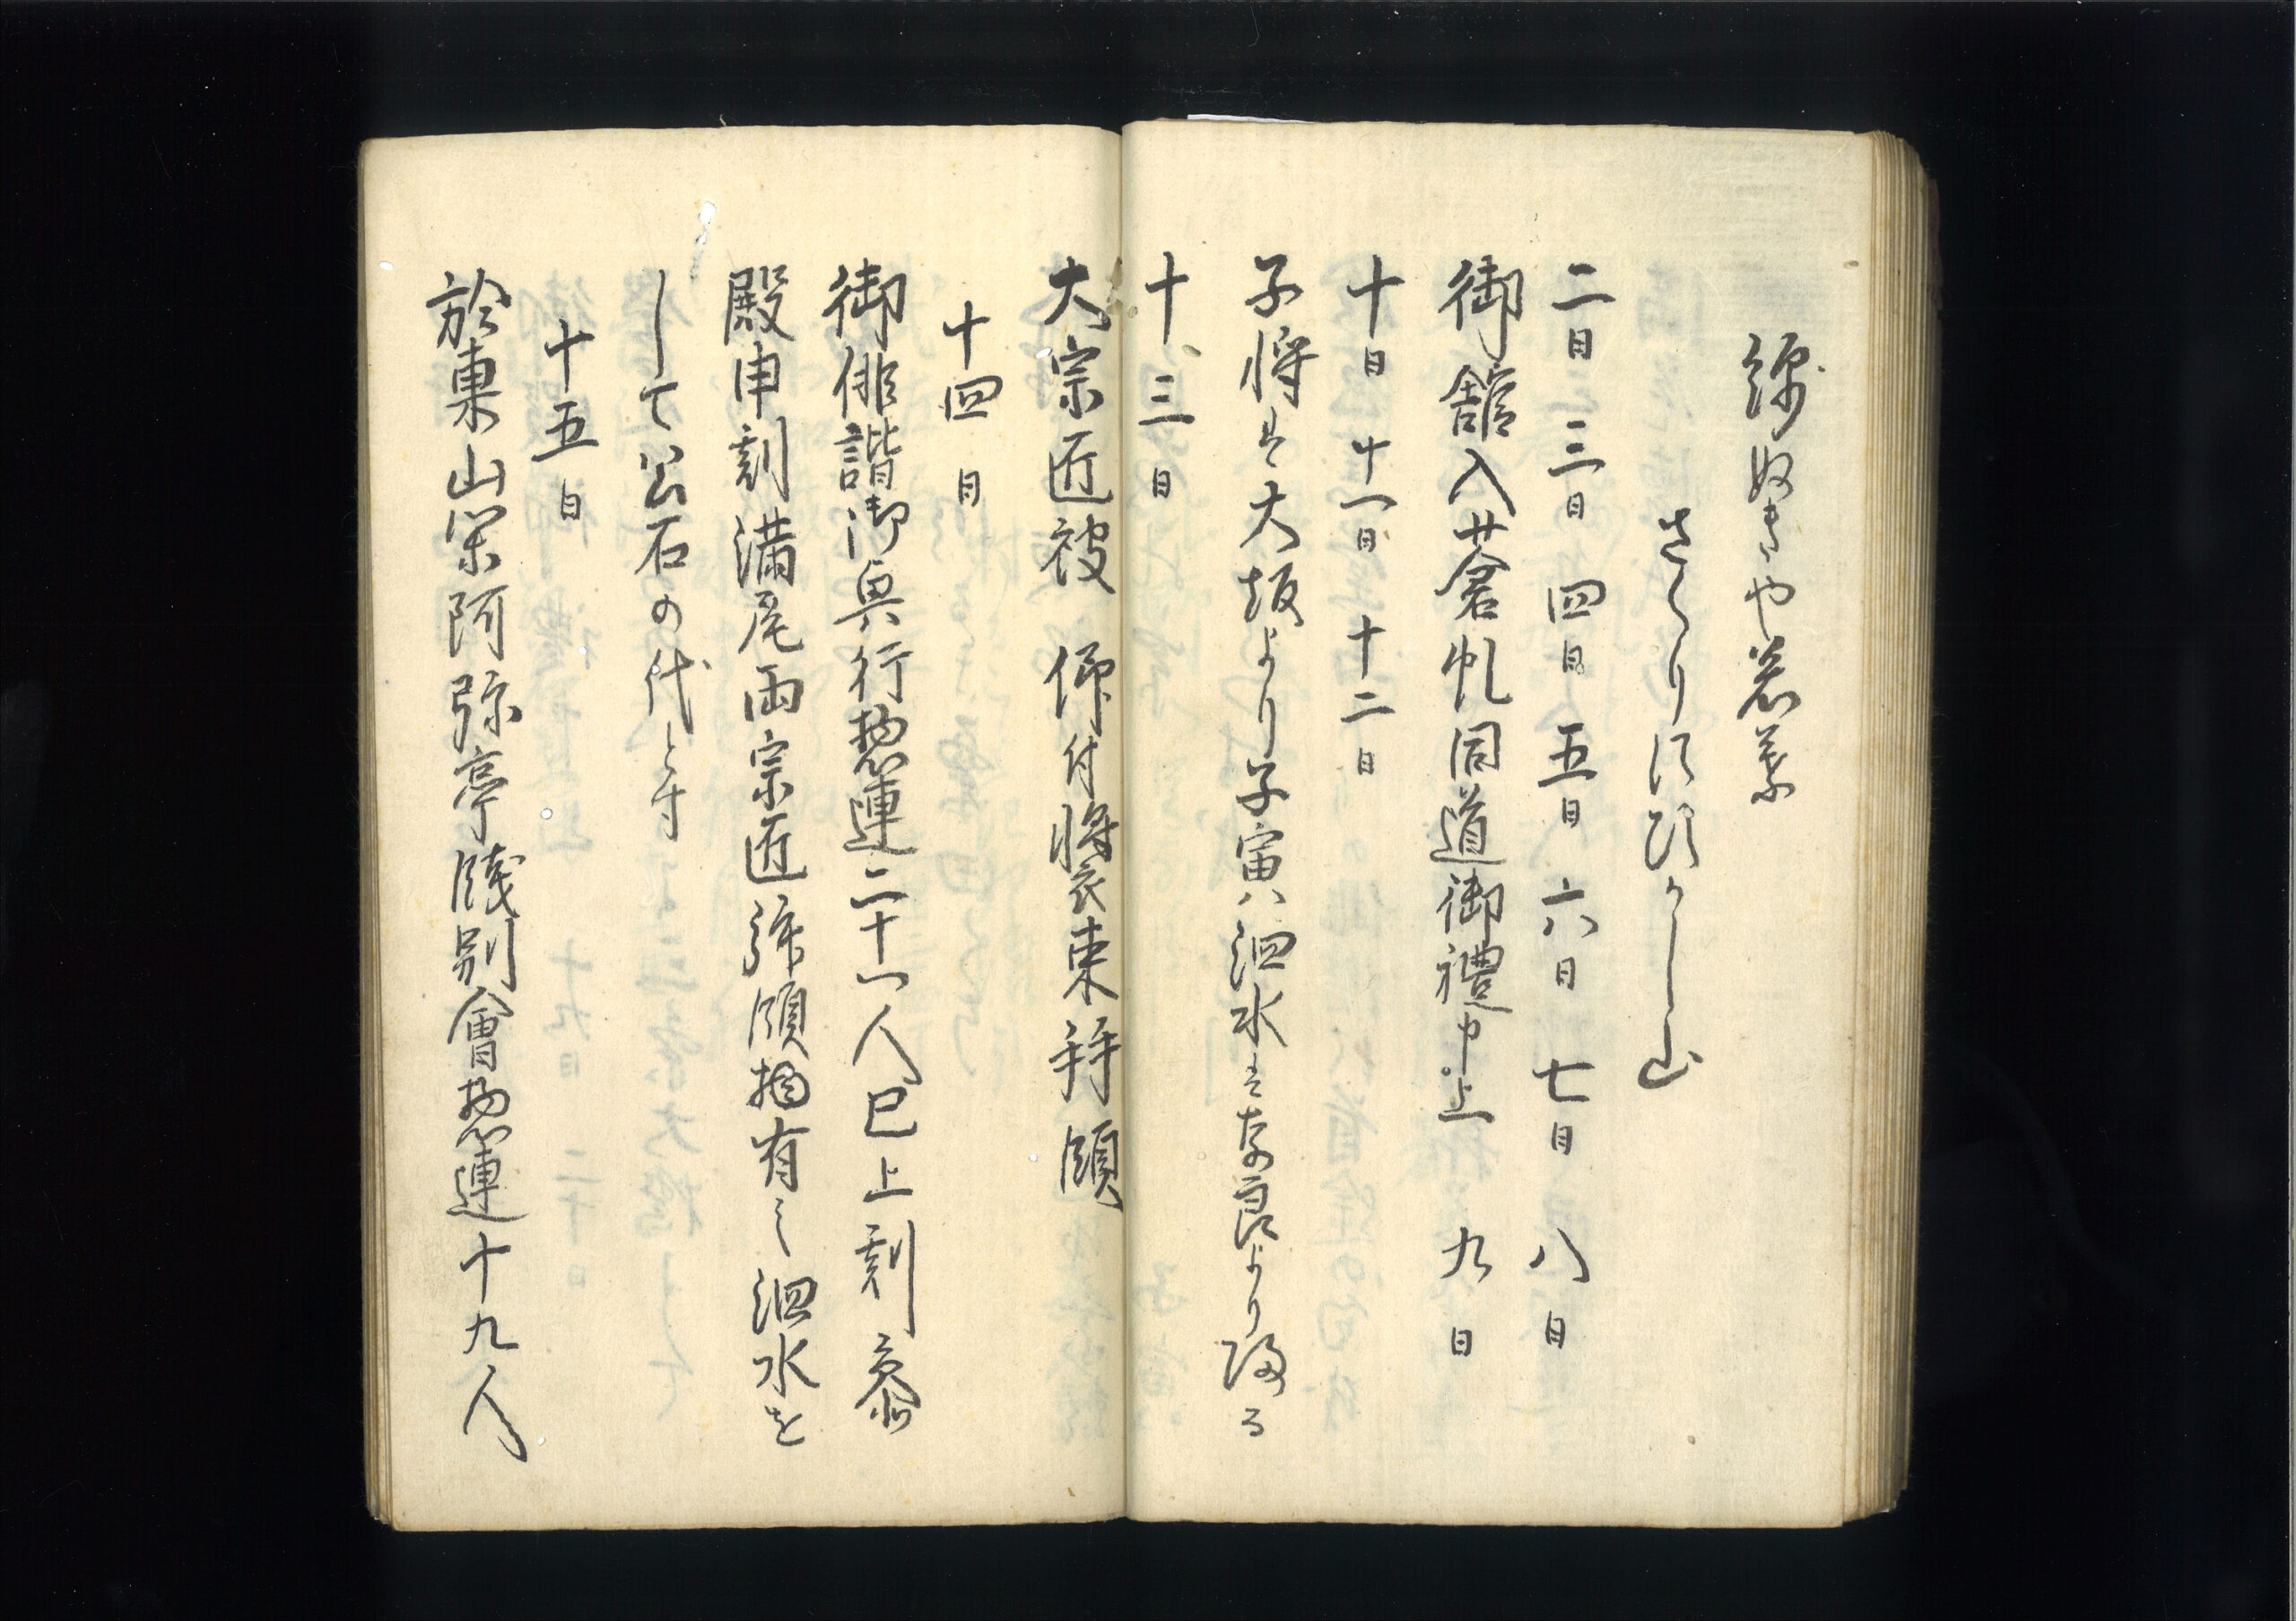 二日 三日 四日 五日 六日 七日 八日
御舘入蒼虬同道御禮申上 九日
十日 十一日 十二日
子将は大坂より子寅ハ泗水と奈良より帰る
十三日
大宗匠被 仰付将衣束拝領
十四日
御俳諧御興行惣連二十一人巳上刻参
殿申刻満尾両宗匠拝領物有之泗水を
して公石の代とす
十五日
於東山栄阿弥亭餞別會惣連十九人